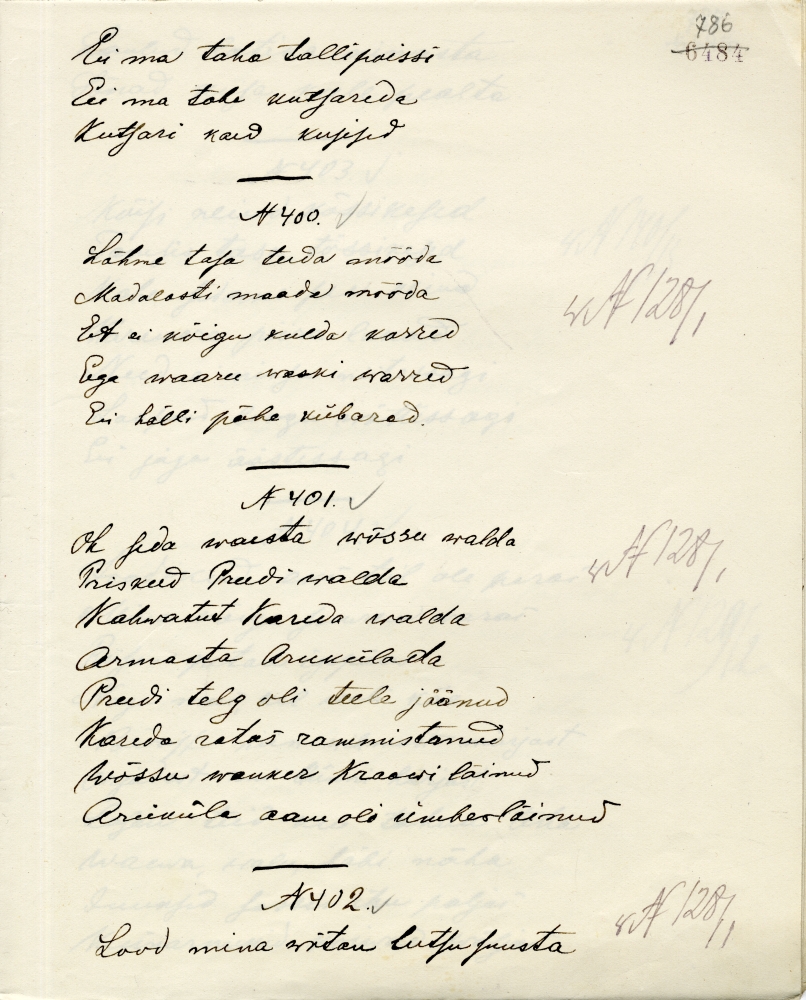 786
6484
Ei ma taha tallipoissi
Ei ma tahe kutsareida
Kutsari kaed kusised
N 400.
Lähme tasa teida mööda
Madalasti maada mööda
Et ei kõigu kulda karred
Ega waaru waski warred
Ei lälli pähe kübarad.
N 128/1
N 401.
Oh seda waesta wõssu walda
Priskeid Preedi walda
Kahwatut Kareda walda
Armasta Arukülada
Preedi telg oli teele jäänud
Kareda ratas rammistanud
Wõssu wanker Kraawi läinud
Aruküla aam oli ümberläinud
N 128/1
N 402.
Lood mina wõtan lutsu suusta
N 128/1